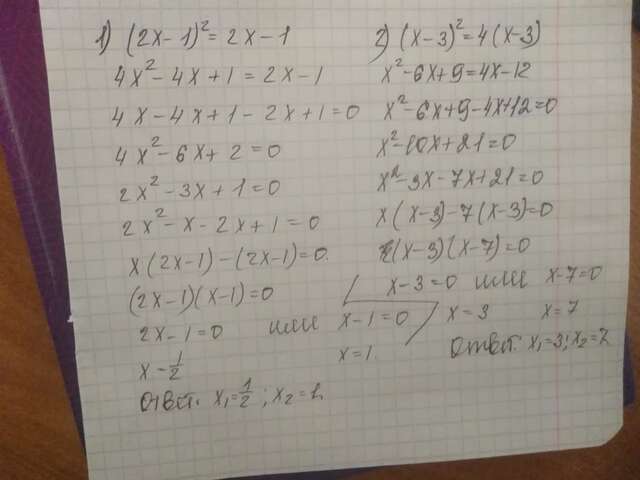 1) (2x-1)² = 2x-1
4x² - 4x + 1 = 2x - 1
4x - 4x + 1 - 2x + 1 = 0
4x² - 6x + 2 = 0
2x² - 3x + 1 = 0
2x² - x - 2x + 1 = 0
x(2x-1) - (2x-1) = 0.
(2x-1)(x-1) = 0
2x - 1 = 0 или x - 1 = 0
x - 1/2 x = 1.
Ответ: x₁ = 1/2; x₂ = 1.
2) (x-3)² = 4(x-3)
x² - 6x + 9 = 4x - 12
x² - 6x + 9 - 4x + 12 = 0
x² - 10x + 21 = 0
x² - 3x - 7x + 21 = 0
x(x-3) - 7(x-3) = 0
(x-3)(x-7) = 0
x - 3 = 0 или x - 7 = 0
x = 3 x = 7
Ответ: x₁ = 3; x₂ = 7